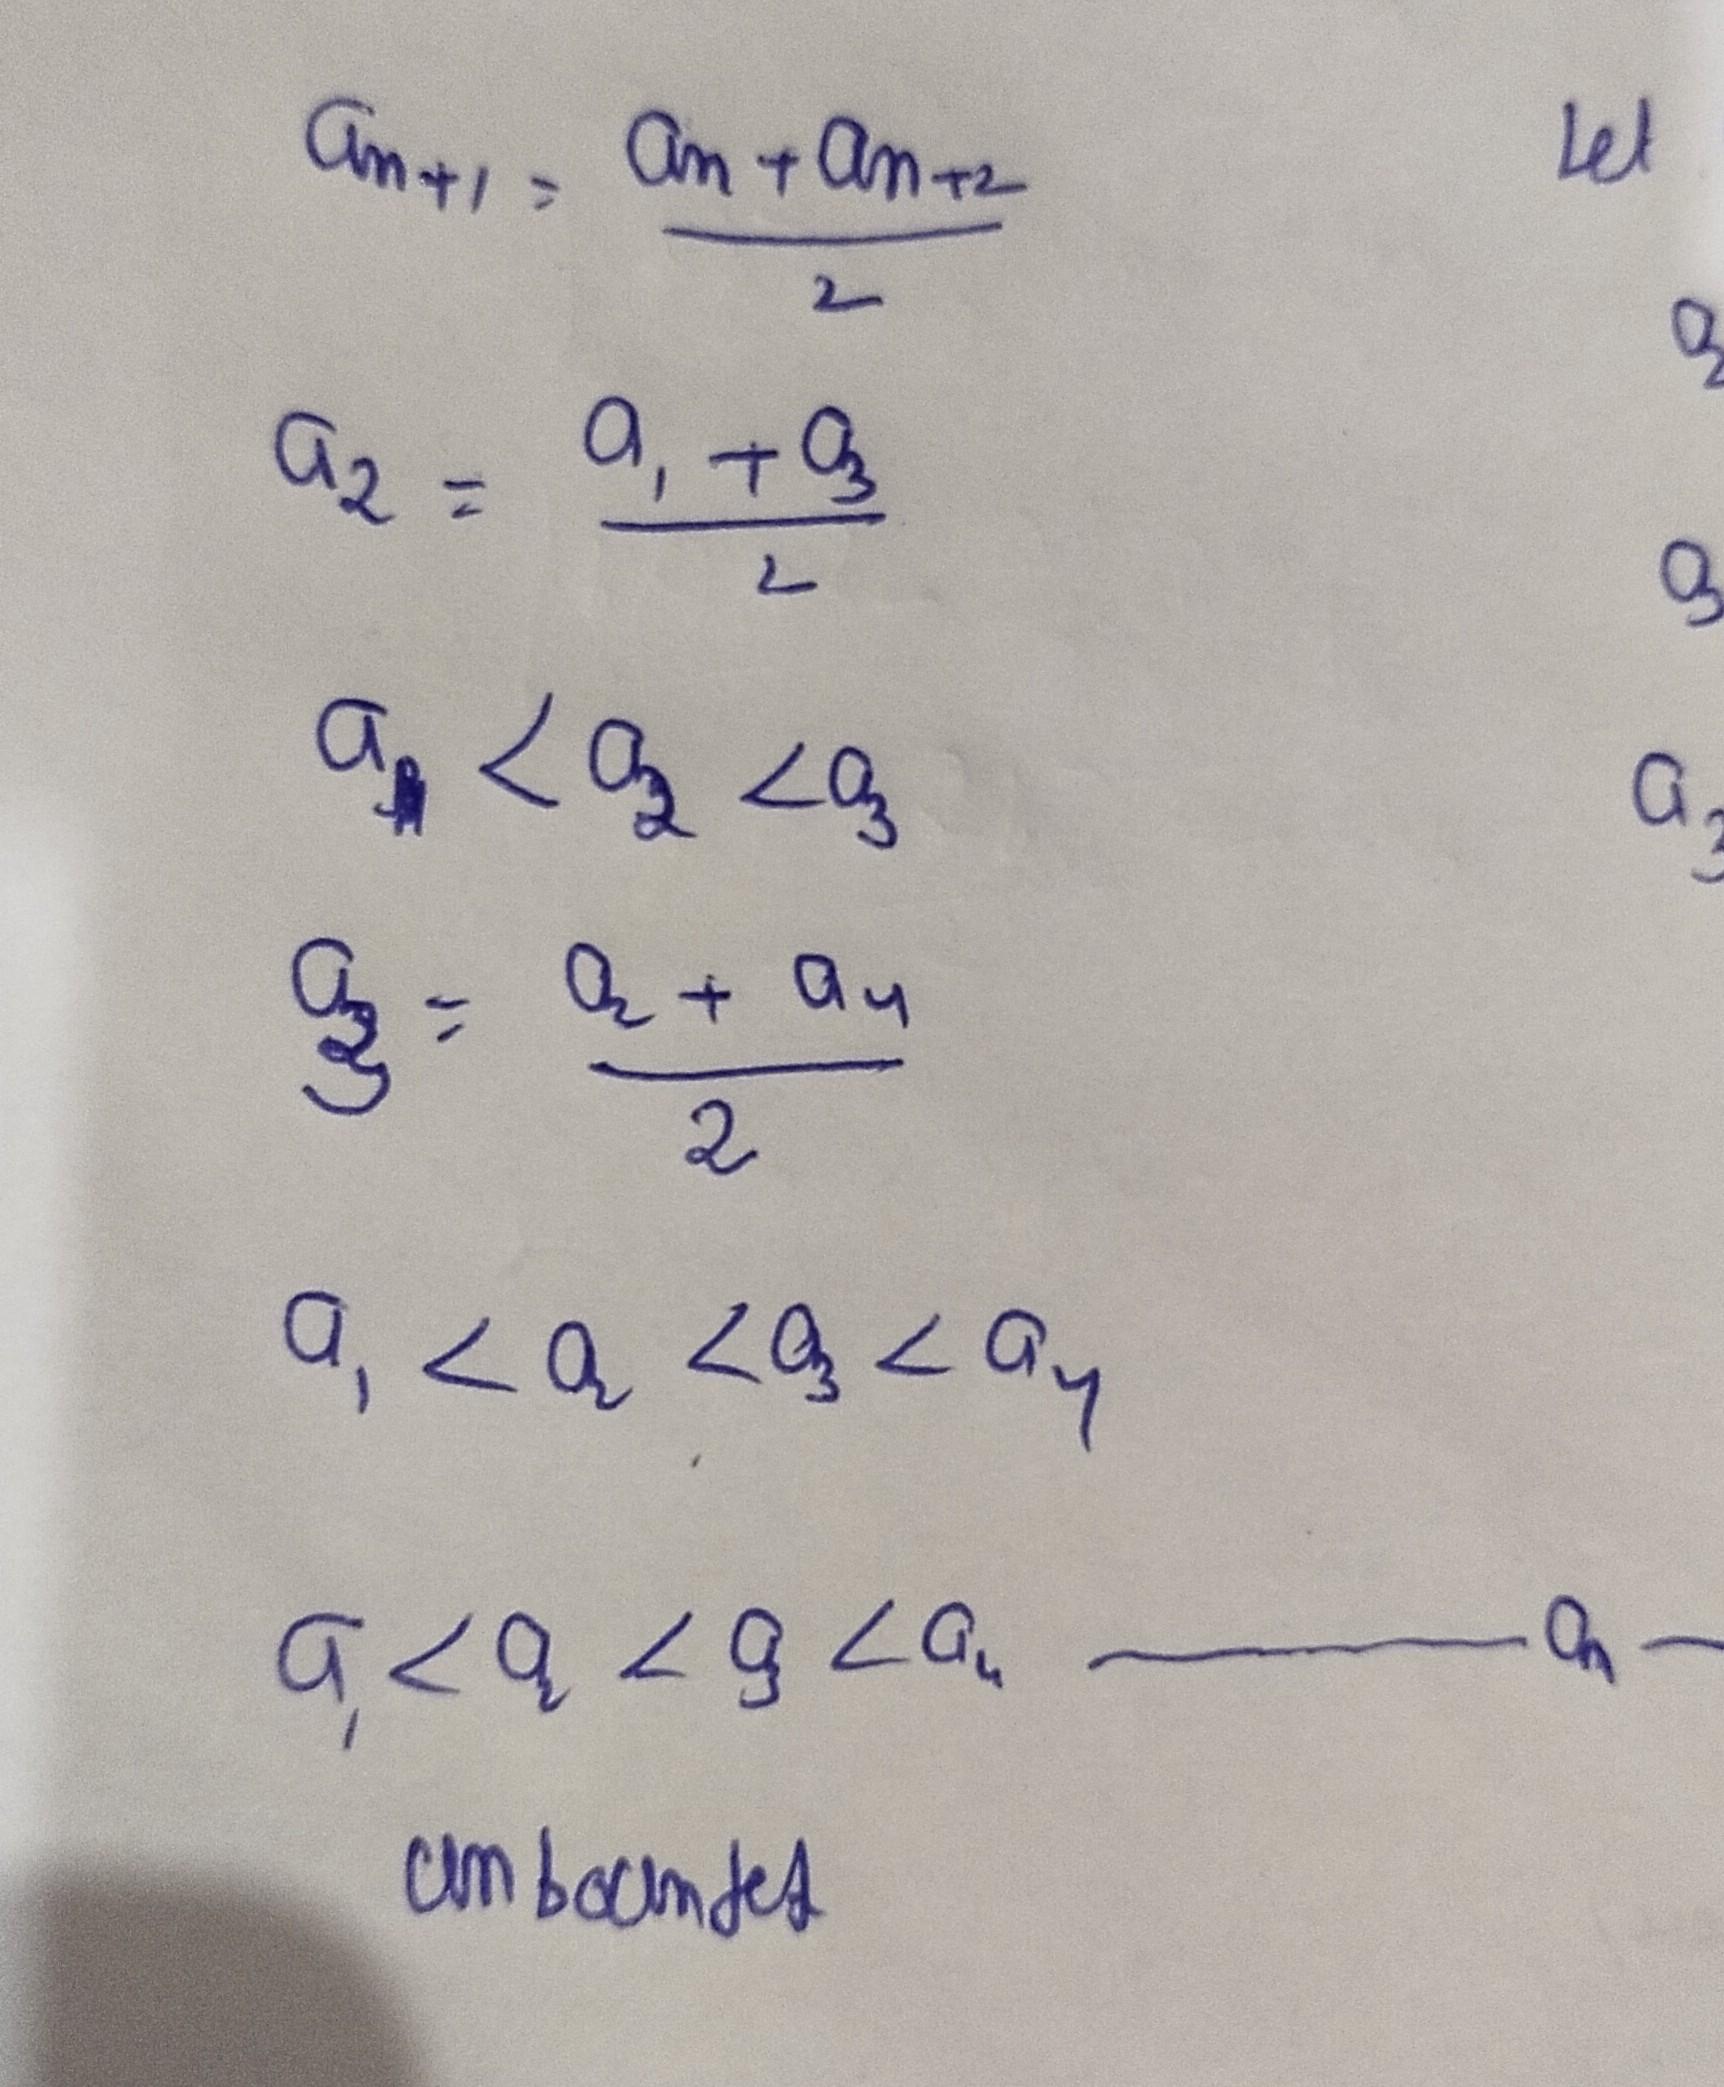 a_{n+1} = \frac{a_n + a_{n+2}}{2}
Let
a_2 = \frac{a_1 + a_3}{2}
a_1 < a_2 < a_3
a_3
a_3 = \frac{a_2 + a_4}{2}
a_1 < a_2 < a_3 < a_4
a_1 < a_2 < a_3 < a_4 ——— a_n —
unbounded